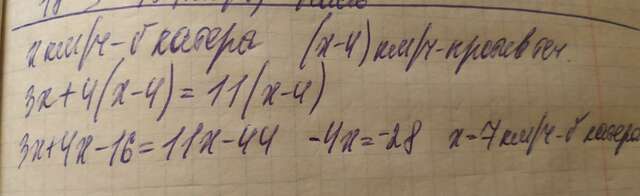 х км/ч - б катера (х-4) км/ч - против теч.
3х+4(х-4)=11(х-4)
3х+4х-16=11х-44 -4х=-28 х=7 км/ч - б катера